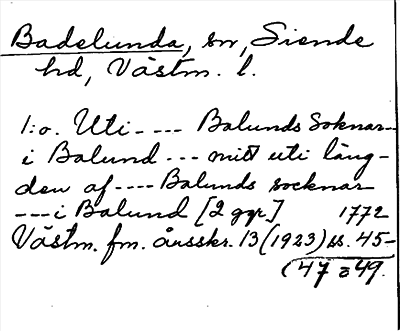 Badelunda, sn, Siende
hd, Västm. l.
1:o. Uti---- Balunds Soknar--
i Balund --- mitt uti läng-
den af---- Balunds socknar
---i Balund [2 ggr.] 1772
Västm. fm. årsskr. 13 (1923) ss. 45-
(47 o 49.